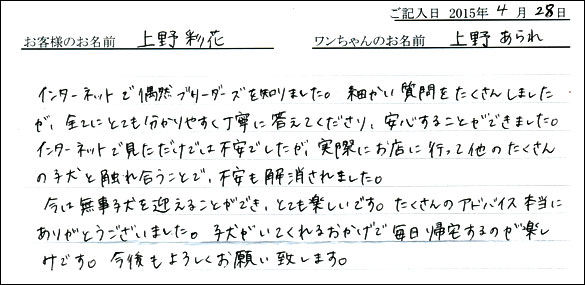 ご記入日 2015年 4月 28日
お客様のお名前 上野 彩花 ワンちゃんのお名前 上野 あられ
インターネットで偶然ブリーダーズを知りました。 細かい質問をたくさんしました
が、全てにとても分かりやすく丁寧に答えてくださり、安心することができました。
インターネットで見ただけでは不安でしたが、実際にお店に行って他のたくさん
の子犬と触れ合うことで、不安も解消されました。
今は無事子犬を迎えることができ、とても楽しいです。たくさんのアドバイス本当に
ありがとうございました。子犬がいてくれるおかげで毎日帰宅するのが楽し
みです。今後もよろしくお願い致します。